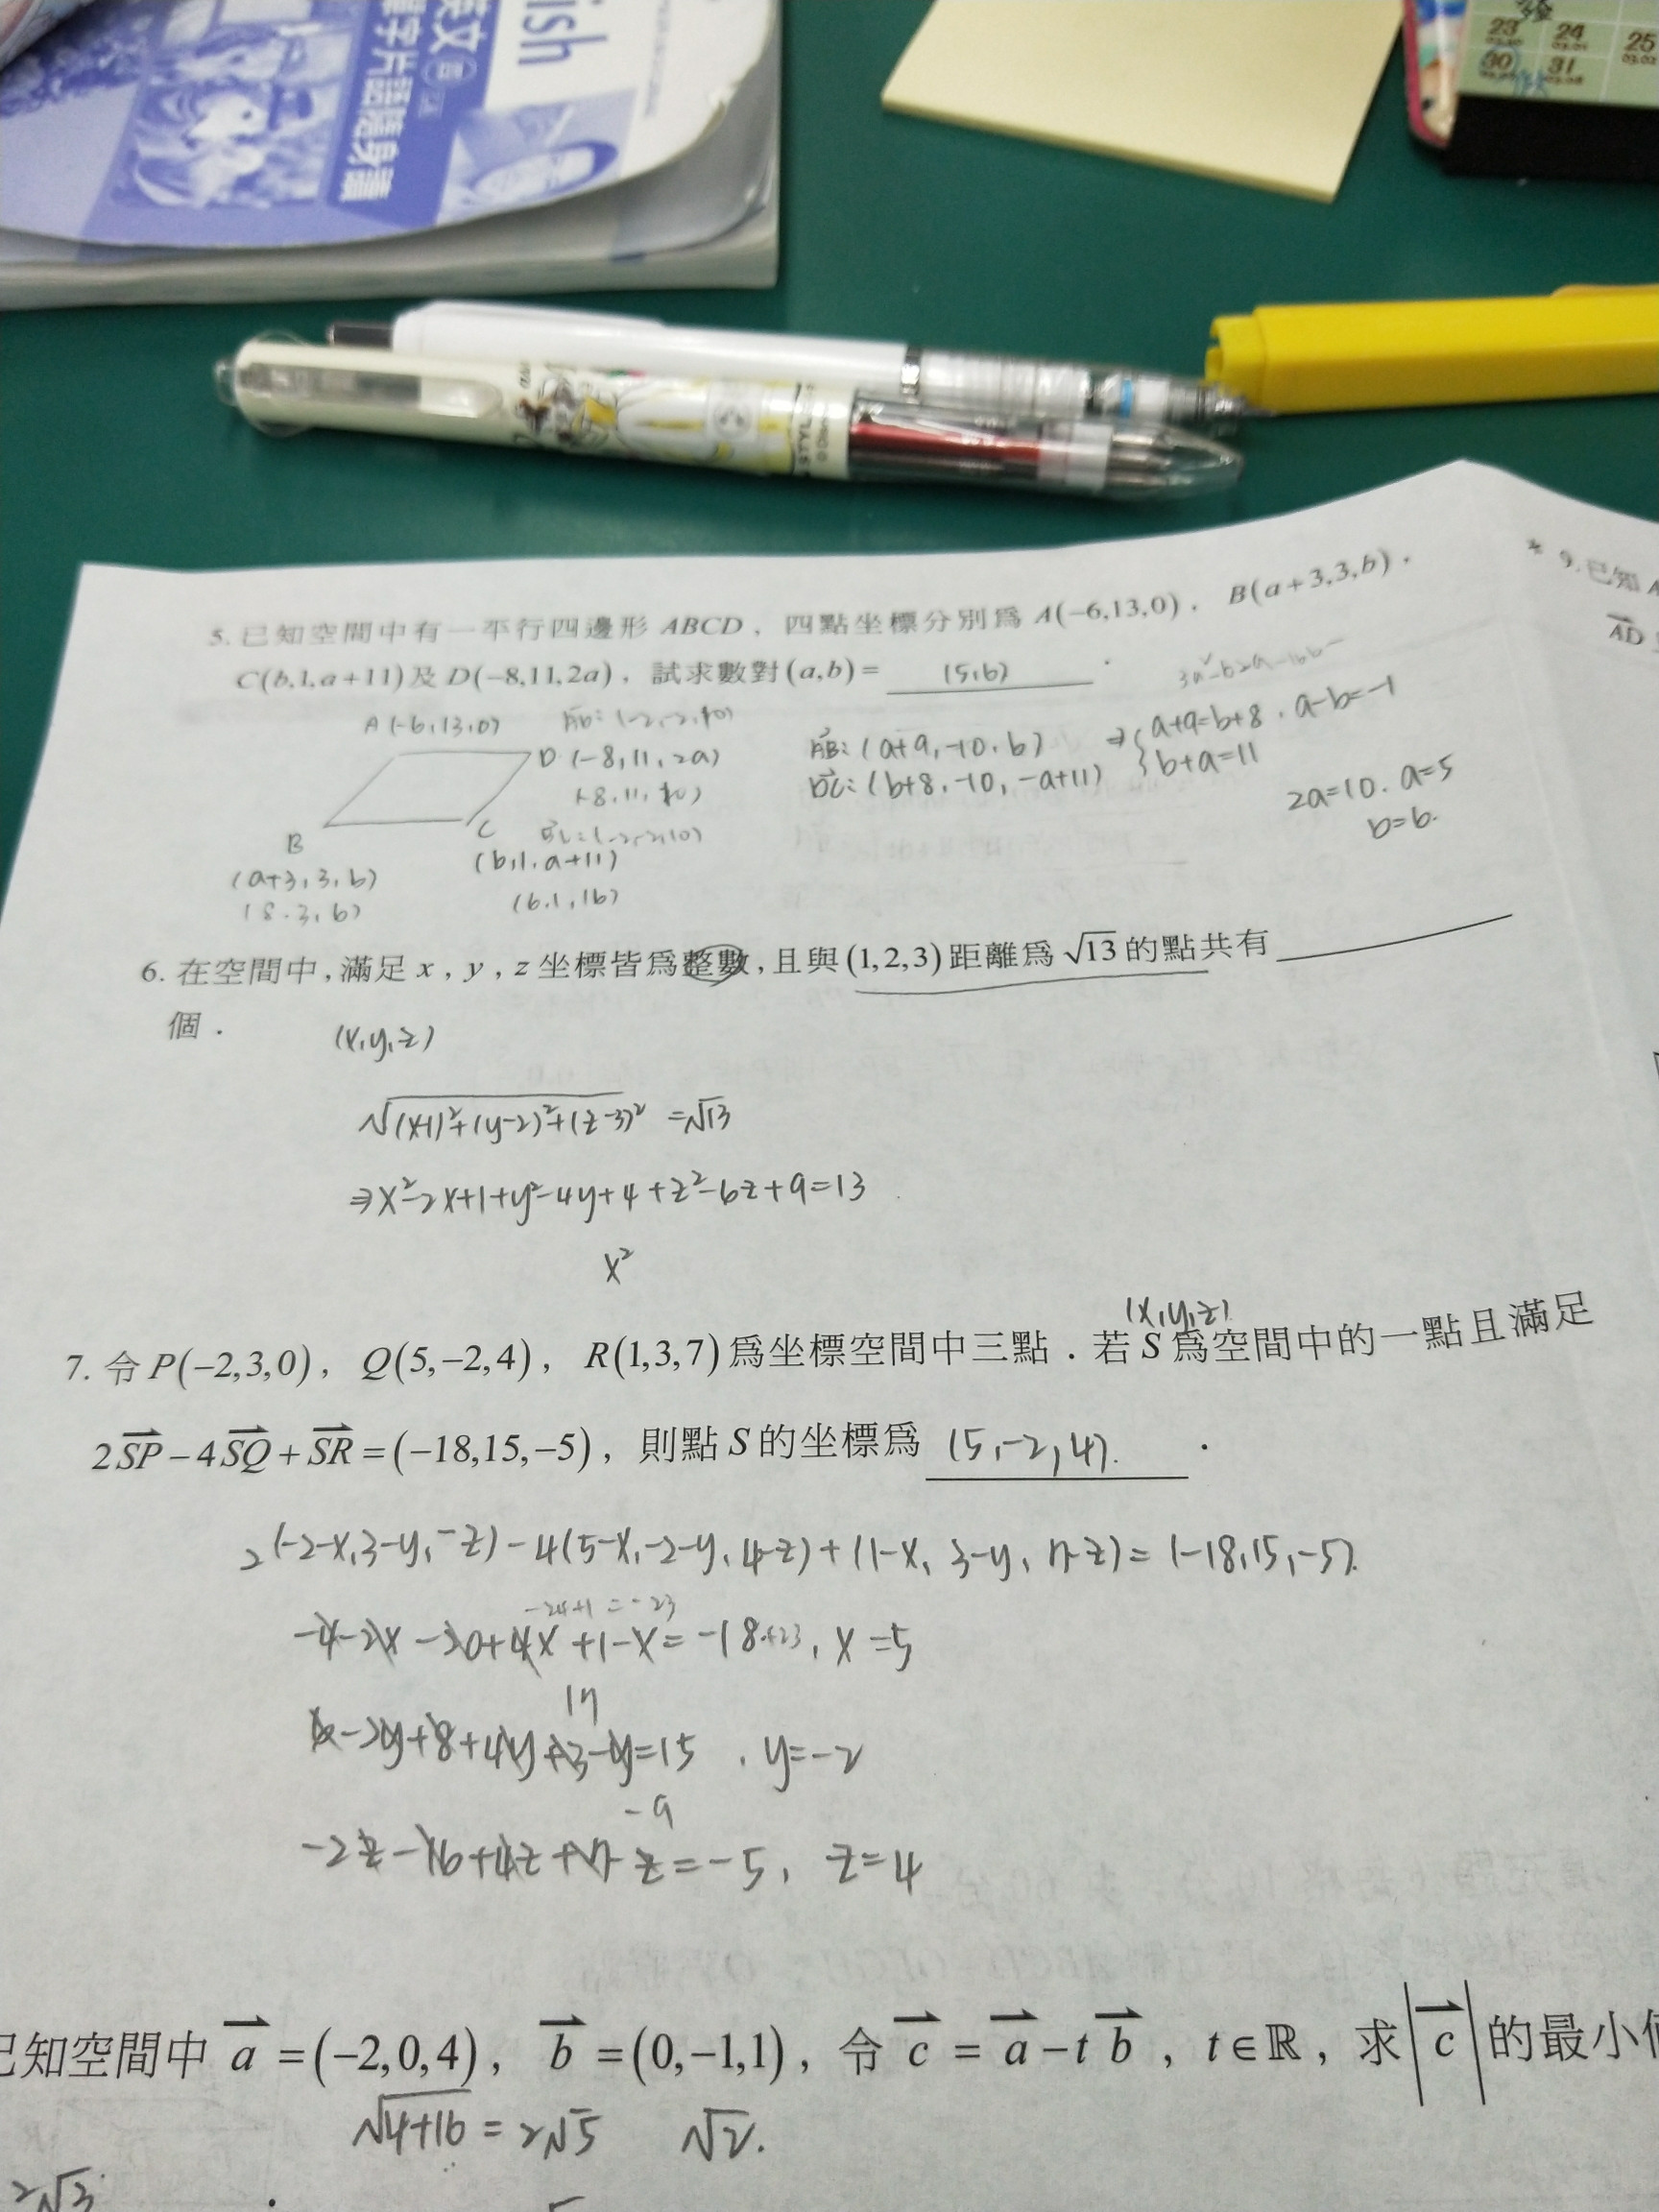 ish
英文
單字片語隨身讀
23 24 25
30 31
5. 已知空間中有一平行四邊形 ABCD，四點坐標分別為 A(−6,13,0)，B(a+3,3,b)，
C(b,1,a+11)及D(−8,11,2a)，試求數對(a,b)= (5,6) .
A(-6,13,0)
D(-8,11,2a)
B
C
(a+3,3,b)
(8,3,6)
(b,1,a+11)
(6,1,16)
AB:(a+9,-10,b)
DC:(b+8,-10,-a+11)
⇒{a+9=b+8, a-b=-1
b+a=11
2a=10, a=5
b=6.
* 9.已知
AD
6. 在空間中，滿足 x，y，z 坐標皆為整數，且與(1,2,3)距離為√13的點共有
個．
(x,y,z)
√(x-1)²+(y-2)²+(z-3)² =√13
⇒x²-2x+1+y²-4y+4+z²-6z+9=13
x²
(x,y,z)
7. 令P(−2,3,0)，Q(5,−2,4)，R(1,3,7)為坐標空間中三點．若S為空間中的一點且滿足
2SP−4SQ+SR=(−18,15,−5)，則點S的坐標為 (5,-2,4). .
2(-2-x,3-y,-z)-4(5-x,-2-y,4-z)+(1-x,3-y,7-z)=(-18,15,-5).
-24+1=-23
-4-2x-20+4x+1-x=-18+23, x=5
17
6-2y+8+4y+3-y=15, y=-2
-9
-2z-16+4z+7-z=-5, z=4
已知空間中 a=(−2,0,4)，b=(0,−1,1)，令 c=a−tb，t∈ℝ，求|c|的最小
√4+16=2√5 √2.
2√3